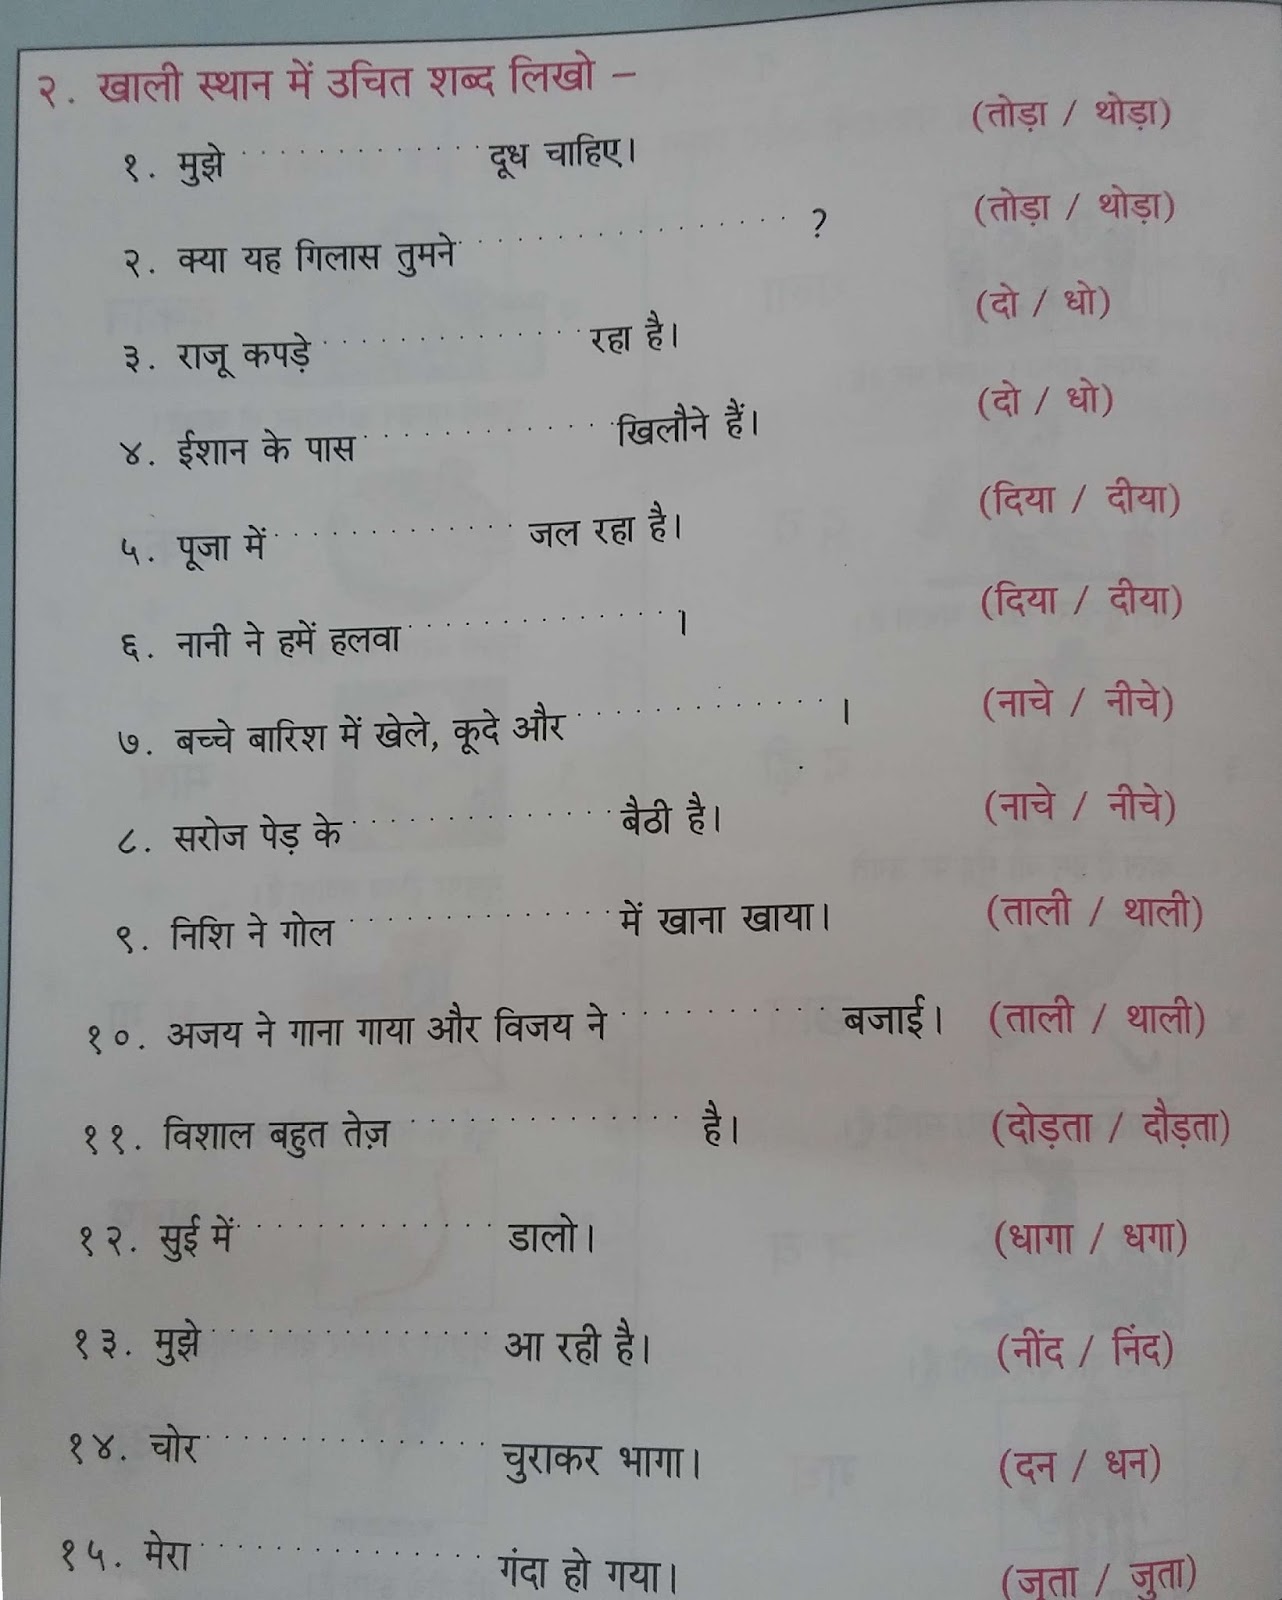 २. खाली स्थान में उचित शब्द लिखो –
१. मुझे ............. दूध चाहिए। (तोड़ा / थोड़ा)
२. क्या यह गिलास तुमने ................. ? (तोड़ा / थोड़ा)
३. राजू कपड़े .............. रहा है। (दो / धो)
४. ईशान के पास .............. खिलौने हैं। (दो / धो)
५. पूजा में ............. जल रहा है। (दिया / दीया)
६. नानी ने हमें हलवा .............. । (दिया / दीया)
७. बच्चे बारिश में खेले, कूदे और ............. । (नाचे / नीचे)
८. सरोज पेड़ के .............. बैठी है। (नाचे / नीचे)
९. निशि ने गोल .............. में खाना खाया। (ताली / थाली)
१०. अजय ने गाना गाया और विजय ने .......... बजाई। (ताली / थाली)
११. विशाल बहुत तेज़ ............. है। (दोड़ता / दौड़ता)
१२. सुई में ............. डालो। (धागा / धगा)
१३. मुझे .............. आ रही है। (नींद / निंद)
१४. चोर .............. चुराकर भागा। (दन / धन)
१५. मेरा .............. गंदा हो गया। (जूता / जुता)